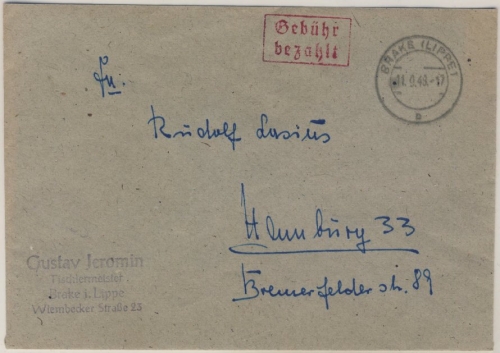 Gebühr
bezahlt
BRAKE (LIPPE)
11.9.48.-17
a
An:
Rudolf Lasius
Hamburg 33
Bramfelder str. 89
Gustav Jeromin
Tischlermeister
Brake i. Lippe
Wiembecker Straße 23